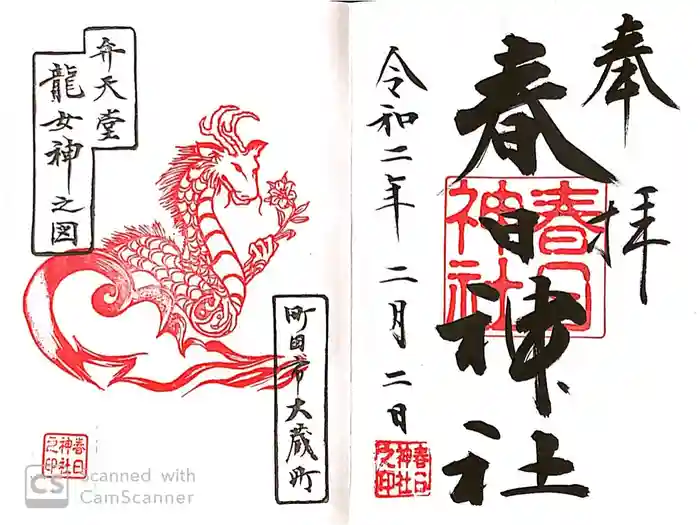 奉拝
春日神社
春日神社
令和二年 二月 二日
春日神社之印
弁天堂
龍女神之図
町田市大蔵町
春日神社之印
CS Scanned with
CamScanner